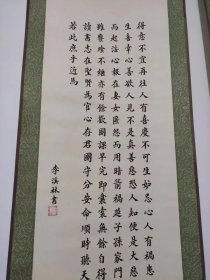 得意不宜再往人有喜慶不可生妒忌心人有禍患
生喜幸心善欲人見不是真善惡恐人知便是大惡
而起淫心報在妻女匿怨而用暗箭禍延子孫家門
雖饔飧不繼亦有餘歡國課早完即囊橐無餘自得
讀書志在聖賢爲官心存君國守分安命順時聽天
若此庶乎近焉
李溪林書